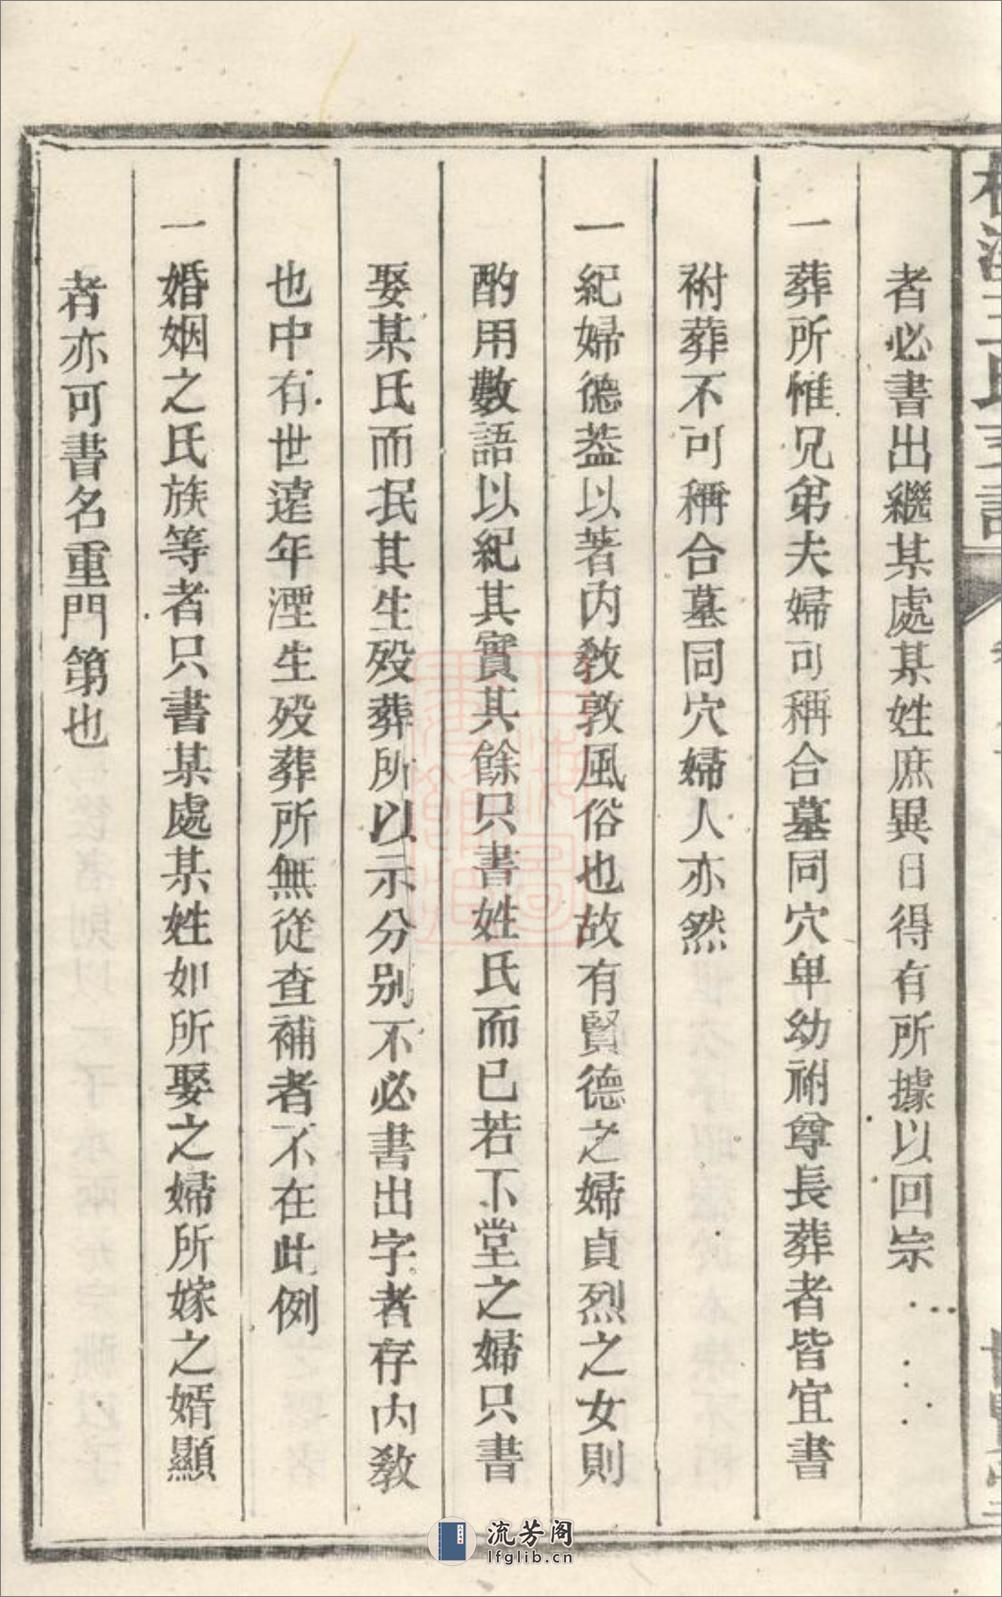 者必書出繼某處某姓庶異日得有所據以回宗
一葬所惟兄弟夫婦可稱合墓同穴卑幼祔尊長葬者皆宜書
祔葬不可稱合墓同穴婦人亦然
一紀婦德葢以著内教敦風俗也故有賢德之婦貞烈之女則
酌用數語以紀其實其餘只書姓氏而已若下堂之婦只書
娶某氏而泯其生殁葬所以示分别不必書出字者存内教
也中有世遠年湮生殁葬所無從查補者不在此例
一婚姻之氏族等者只書某處某姓如所娶之婦所嫁之婿顯
者亦可書名重門第也
流芳阁
lfglib.cn